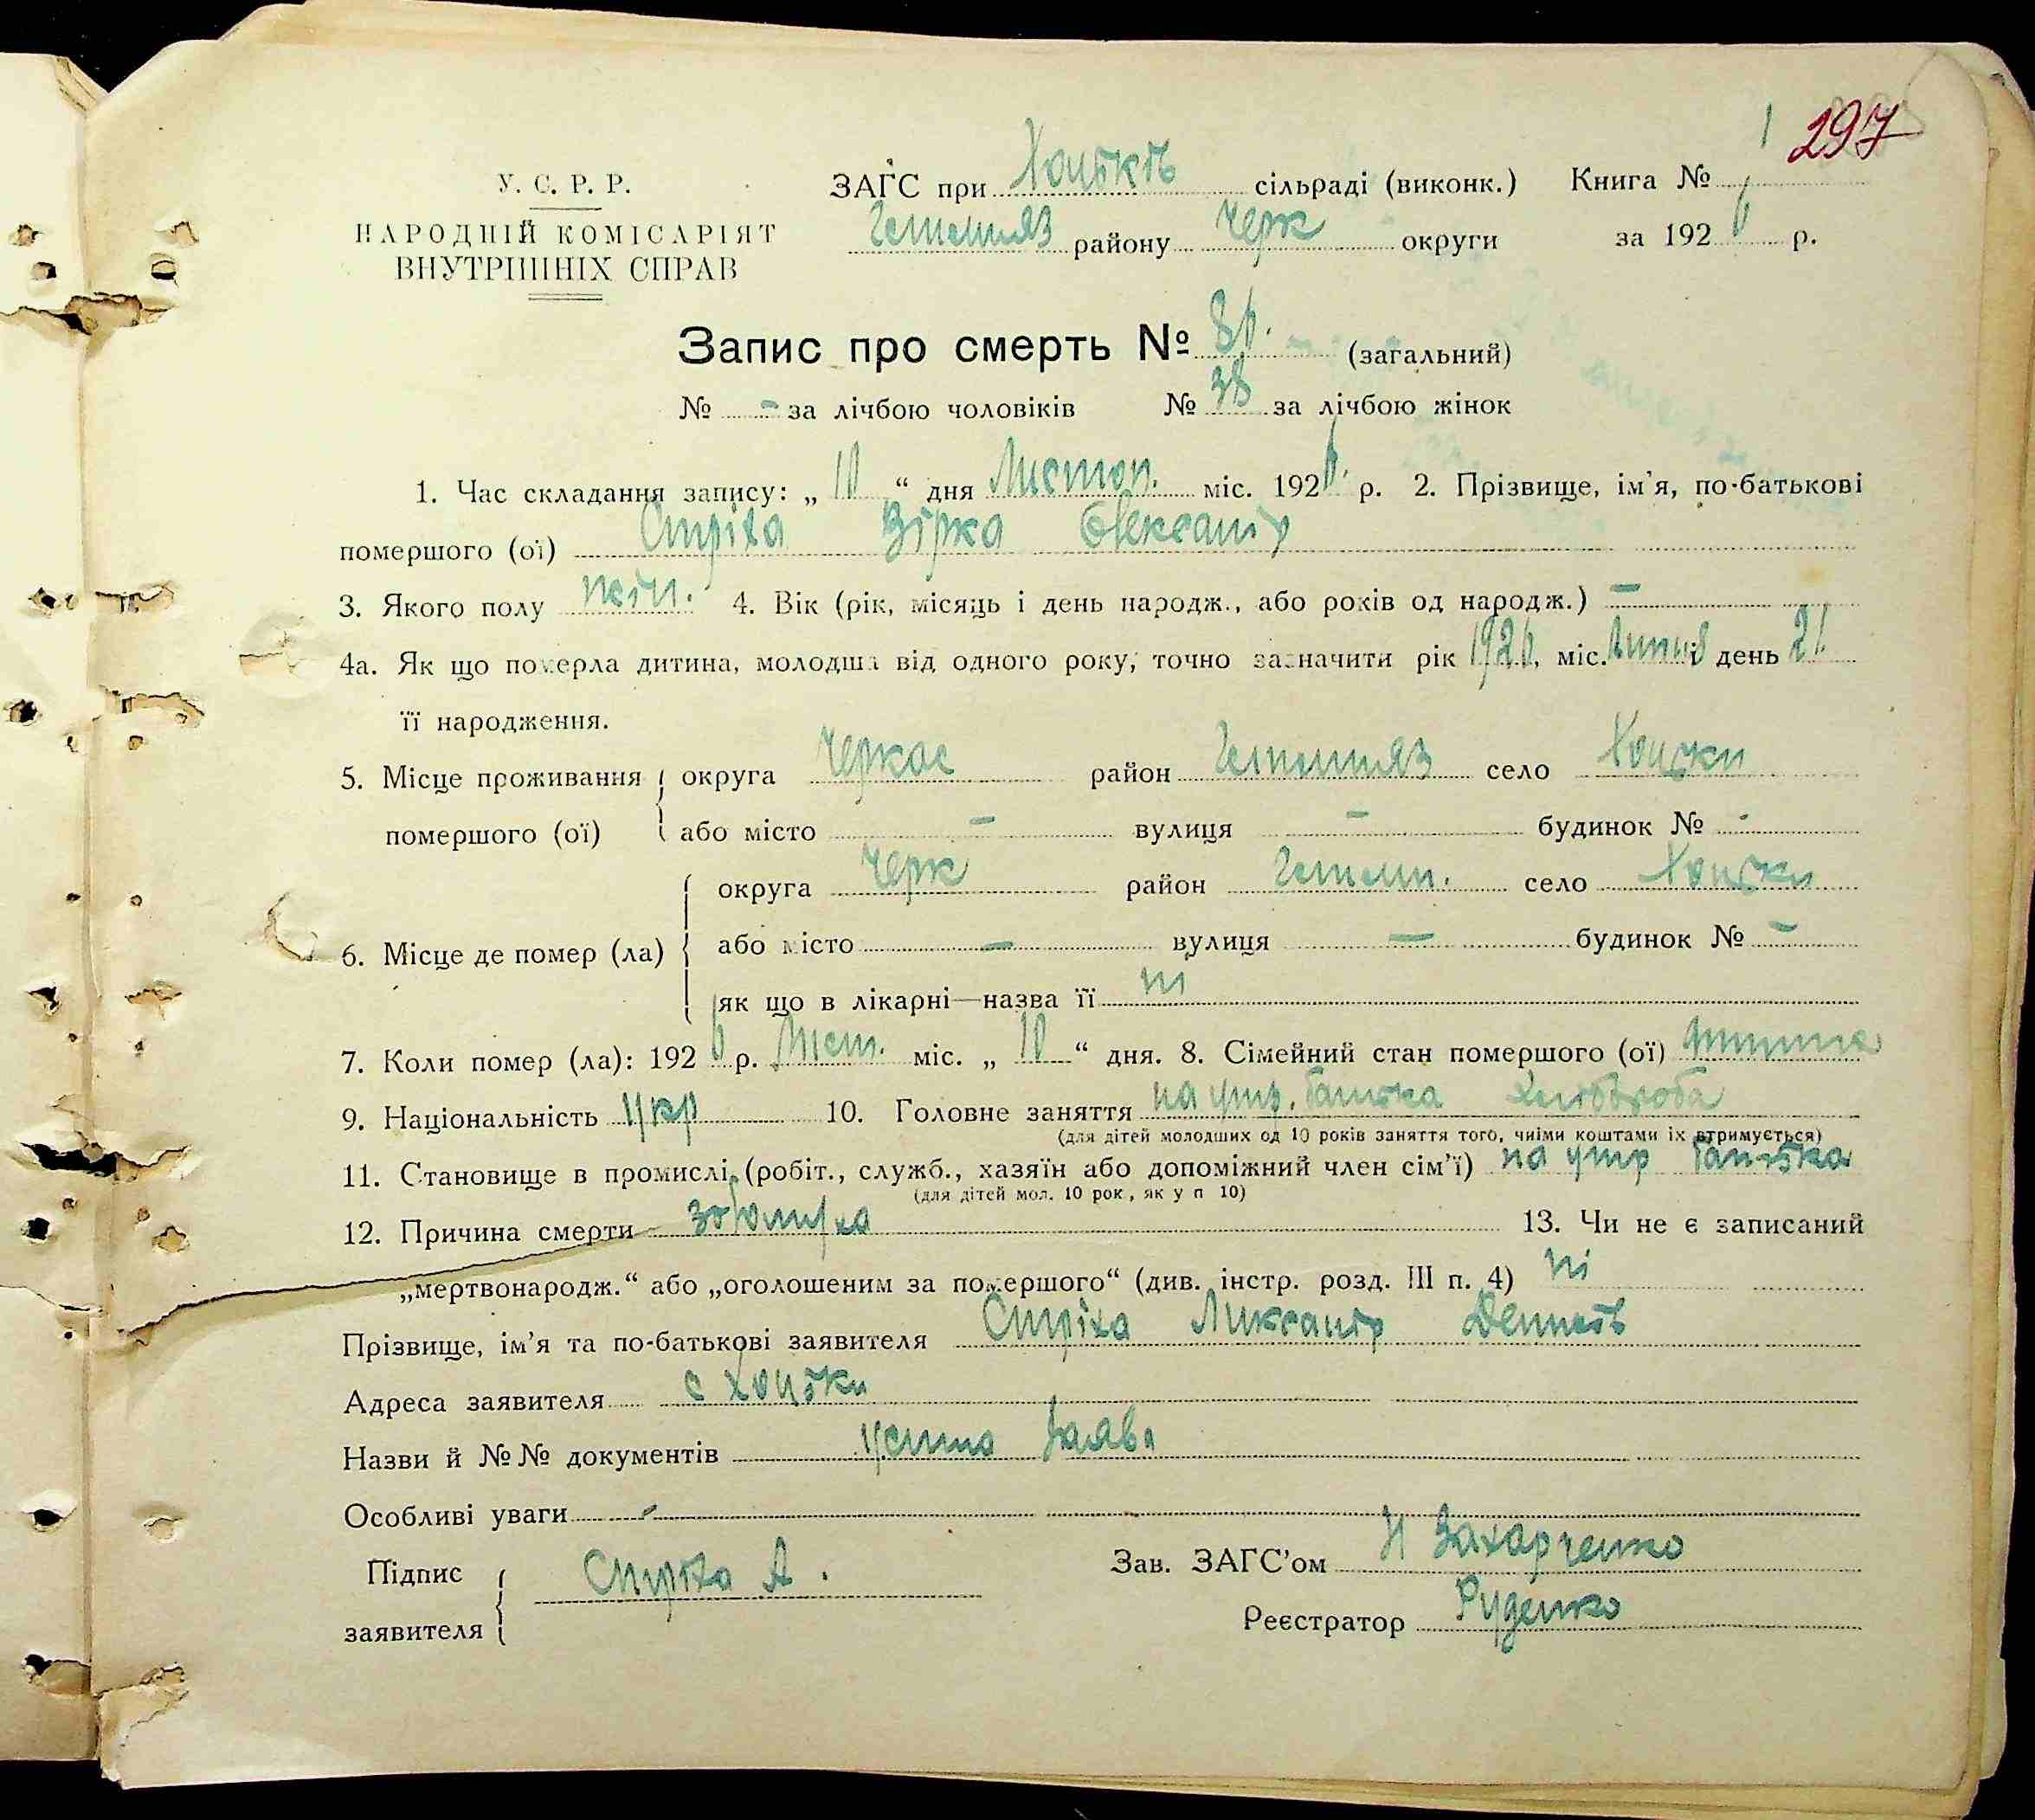 297
У. С. Р. Р.
НАРОДНІЙ КОМІСАРІЯТ
ВНУТРІШНІХ СПРАВ
ЗАГС при Хоцьків сільраді (виконк.) Книга № 1
Гельмяз району Черк округи за 1926 р.
Запис про смерть № 86. (загальний)
№ - за лічбою чоловіків № 38 за лічбою жінок
1. Час складання запису: „ 10 “ дня Листоп. міс. 1926 р. 2. Прізвище, ім'я, по-батькові
помершого (ої) Стріха Зірка Олександ
3. Якого полу жін. 4. Вік (рік, місяць і день народж., або років од народж.) —
4а. Як що померла дитина, молодша від одного року, точно зазначити рік 1926, міс. день 21.
її народження.
5. Місце проживання округа Черкас район Гельмяз село Хоцьки
помершого (ої) або місто - вулиця - будинок № -
округа Черк район село Хоцьки
6. Місце де помер (ла) або місто — вулиця — будинок № -
як що в лікарні—назва її ні
7. Коли помер (ла): 1926 р. Лист. міс. „ 10 “ дня. 8. Сімейний стан помершого (ої) дитина
9. Національність Укр 10. Головне заняття на утр. батька хлібороба
(для дітей молодших од 10 років заняття того, чиїми коштами їх втримується)
11. Становище в промислі (робіт., служб., хазяїн або допоміжний член сім'ї) на утр батька
(для дітей мол. 10 рок, як у п 10)
12. Причина смерти 13. Чи не є записаний
„мертвонародж.“ або „оголошеним за помершого“ (див. інстр. розд. III п. 4) ні
Прізвище, ім'я та по-батькові заявителя Стріха
Адреса заявителя с Хоцьки
Назви й №№ документів Усна заява
Особливі уваги -
Підпис заявителя Стріха А. Зав. ЗАГС'ом Н Захарченко
Реєстратор Руденко